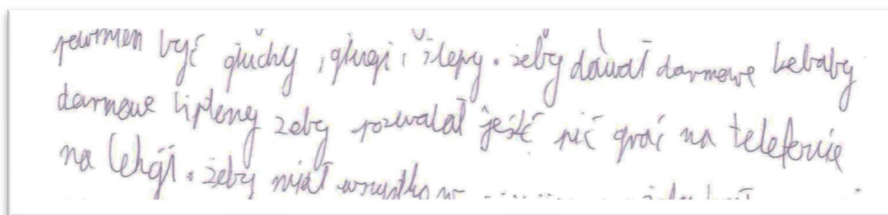 powinien być głuchy, głupi i ślepy. żeby dawał darmowe kebaby
darmowe liptony zeby pozwalał jeść pić grać na telefonie
na lehgji. żeby miał wszystko w